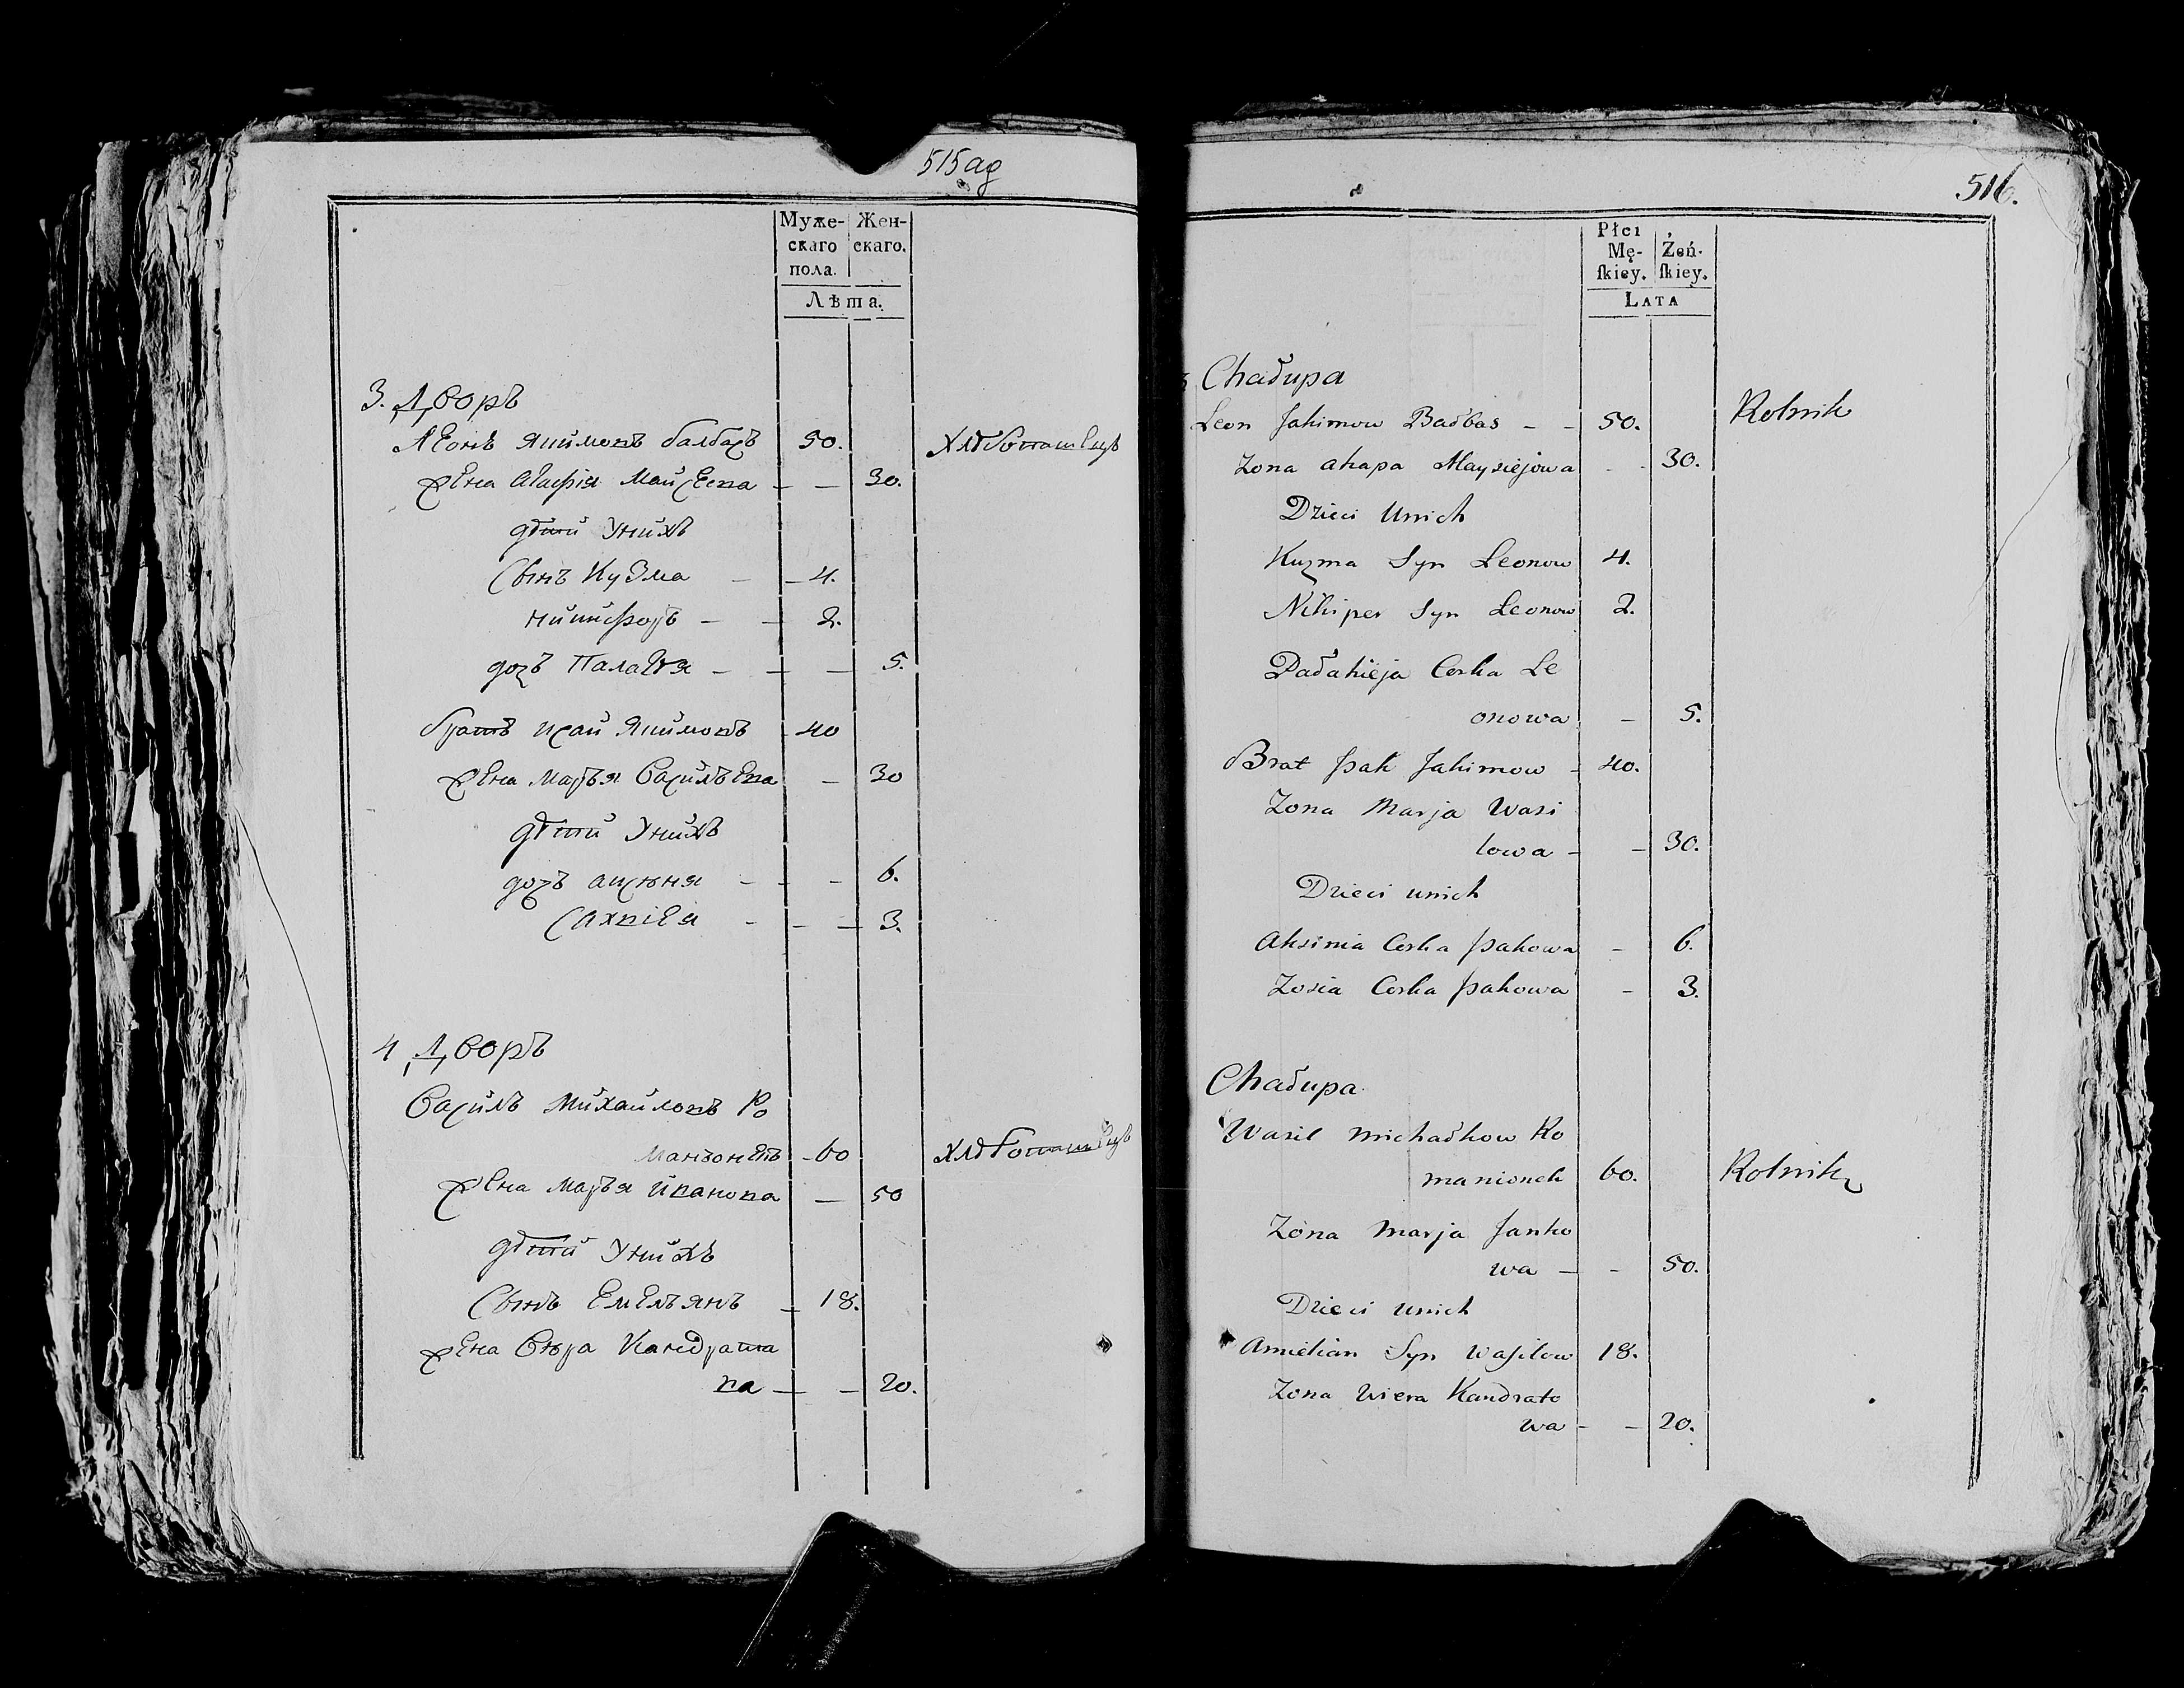 515 ад
Муже-
скаго
пола.
Жен-
скаго.
Лѣта.
3. Дворъ
Леонъ Якимовъ Балбасъ 50. Хлѣбопашецъ
жена Агафія Майсеева — — 30.
дѣти у нихъ
Сынъ Кузма — — 4.
Никифоръ — — 2.
дочь Палагѣя — — — 5.
братъ Исай Якимовъ 40
жена Марья Васильева — 30
дѣти у нихъ
дочь аксѣня — — — 6.
4 Дворъ
Василь Михайловъ Ро
манъонекъ — 60 Хлѣбопашецъ
жена Марья Иванова — 50
дѣти у нихъ
Сынъ Емельянъ — 18.
жена Вѣра Кандрата
ва — — 20.
516.
Płci
Mę-
ſkiey.
Żeń-
ſkiey.
LATA
3 Chałupa
Leon Jakimow Bałbas — — 50. Rolnik
Zona Ahapa Maysiejowa - - 30.
Dzieci Unich
Kuzma Syn Leonow 4.
Nikiper Syn Leonow 2.
Pałahieja Corka Le
onowa — 5.
Brat Jsak Jakimow - 40.
Zona Marja Wasi
lowa - — 30.
Dzieci unich
Aksinia Corka Jsakowa — 6.
Zosia Corka Jsakowa — 3.
Chałupa.
Wasil Michałkow Ro
manionek 60. Rolnik
Zona Marja Janko
wa — - 50.
Dzieci unich
Amielian Syn Waſilow 18.
Zona Wiera Kandrato
wa - — 20.